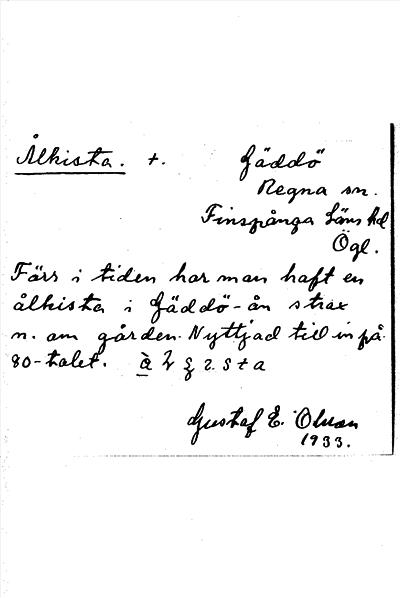 Ålkista. +. Gäddö
Regna sn.
Finspånga Läns hd
Ögl.
Förr i tiden har man haft en
ålkista i Gäddö-ån strax
n. om gården. Nyttjad till in på
80-talet.
Gustaf E. Olsson
1933.